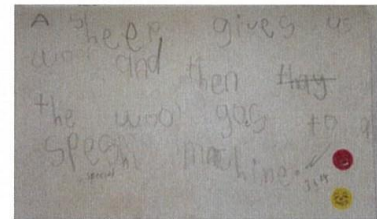 A sheep gives us
woo and then thay
the woo gas to a
speashl machine.
special